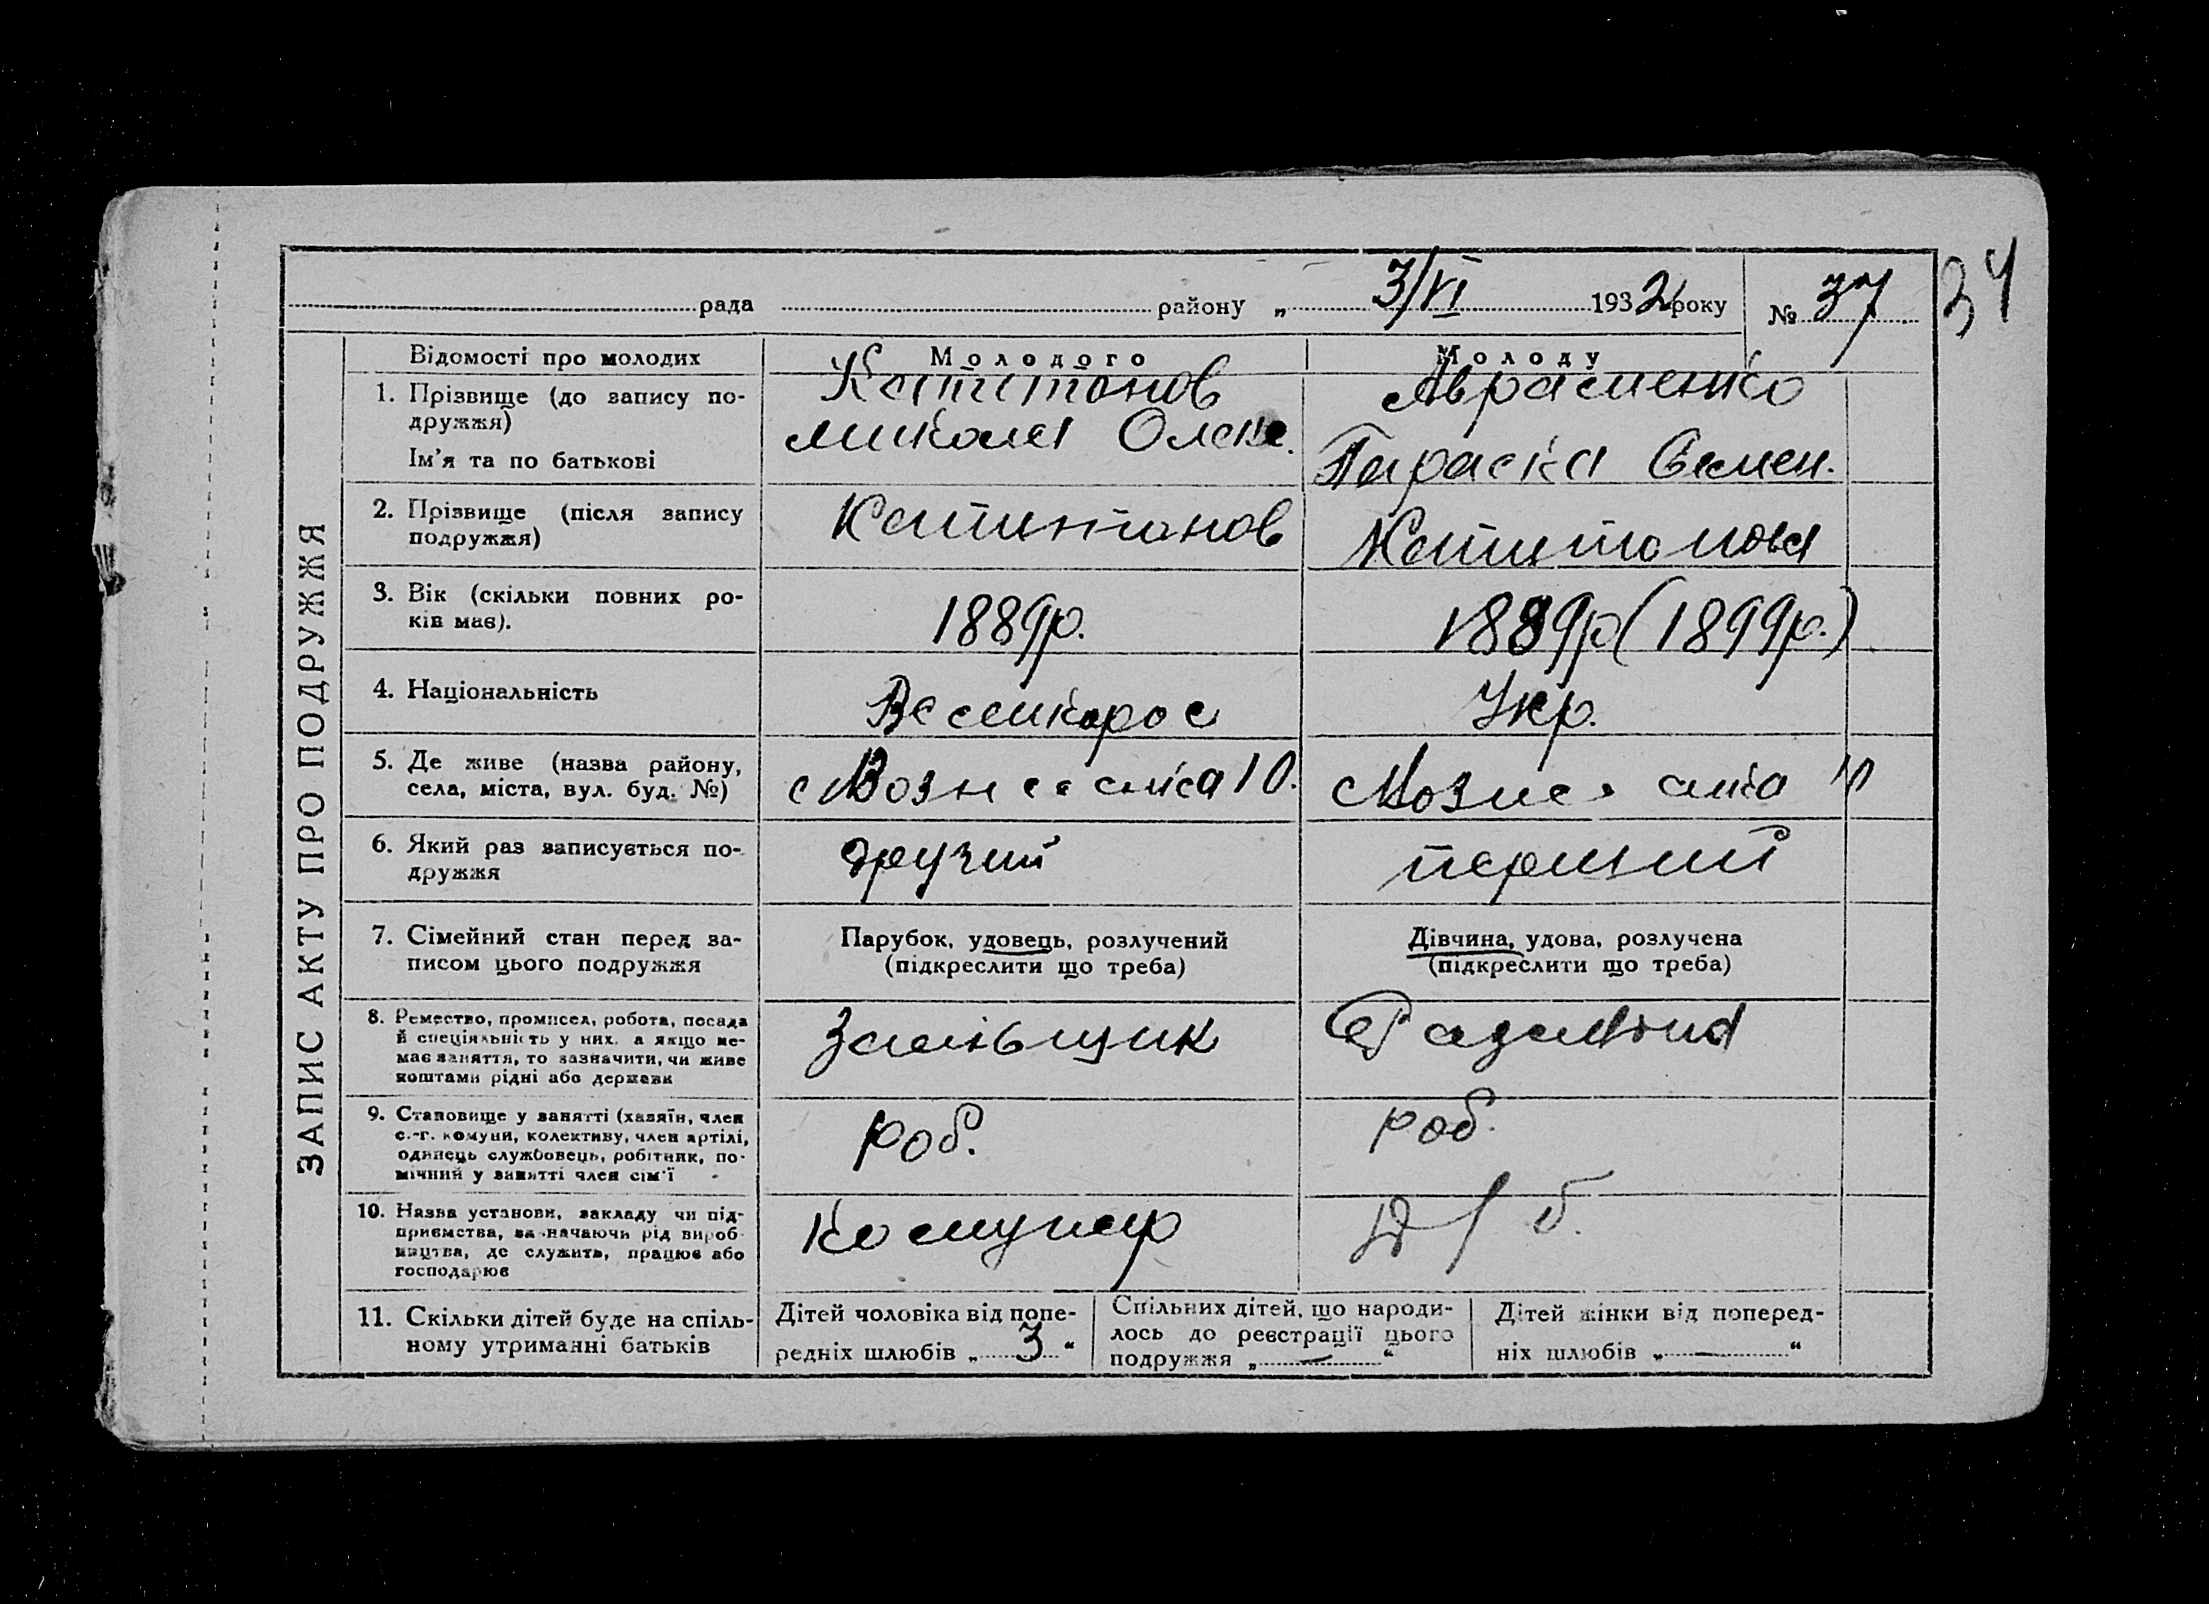 34
рада району „ 3/VI 1932 року № 37
ЗАПИС АКТУ ПРО ПОДРУЖЖЯ
Відомості про молодих
Молодого
Молоду
1. Прізвище (до запису по-
дружжя)
Ім'я та по батькові
Капитонов
Микола Олекс.
Авраменко
Параска Семен.
2. Прізвище (після запису
подружжя)
Капитонов
Капитонова
3. Вік (скільки повних ро-
ків має).
1889р.
1889р (1899р.)
4. Національність
Великорос
Укр.
5. Де живе (назва району,
села, міста, вул. буд. №)
10.
10
6. Який раз записується по-
дружжя
другий
перший
7. Сімейний стан перед за-
писом цього подружжя
Парубок, удовець, розлучений
(підкреслити що треба)
Дівчина, удова, розлучена
(підкреслити що треба)
8. Ремество, промисел, робота, посада
й спеціяльність у них, а якщо не-
має заняття, то зазначити, чи живе
коштами рідні або держави
9. Становище у занятті (хазяїн, член
с.-г. комуни, колективу, член артілі,
одинець службовець, робітник, по-
мічний у занятті член сім'ї
роб.
роб.
10. Назва установи, закладу чи під-
приємства, зазначаючи рід вироб-
ництва, де служить, працює або
господарює
11. Скільки дітей буде на спіль-
ному утриманні батьків
Дітей чоловіка від попе-
редніх шлюбів „ 3 “
Спільних дітей, що народи-
лось до реєстрації цього
подружжя „ — “
Дітей жінки від поперед-
ніх шлюбів „ — “